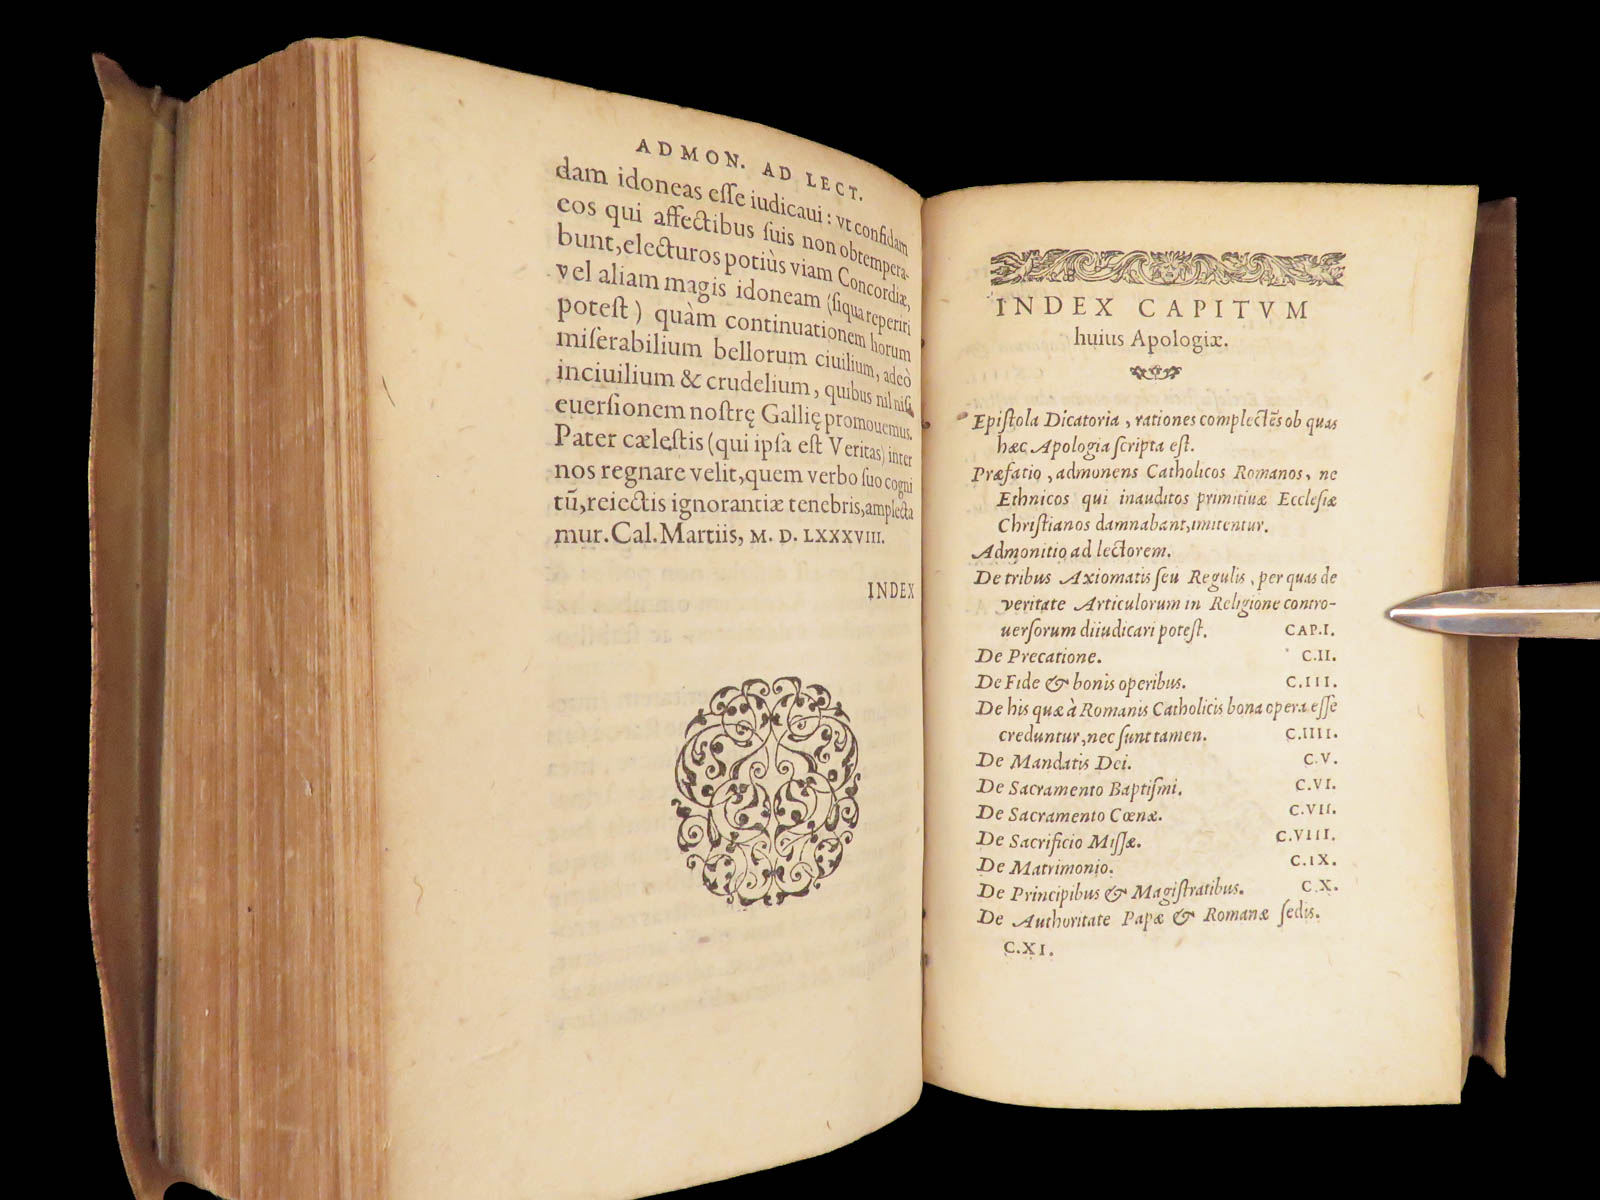 ADMON. AD LECT.
dam idoneas esse iudicaui: vt confidam
eos qui affectibus suis non obtempera-
bunt, electuros potiùs viam Concordiæ,
vel aliam magis idoneam (siqua reperiri
potest) quàm continuationem horum
miserabilium bellorum ciuilium, adeò
inciuilium & crudelium, quibus nil nisi
euersionem nostrę Gallię promouemus.
Pater cælestis (qui ipsa est Veritas) inter
nos regnare velit, quem verbo suo cogni
tũ, reiectis ignorantiæ tenebris, amplecta
mur. Cal. Martiis, M. D. LXXXVIII.
INDEX
INDEX CAPITVM
huius Apologiæ.
Epistola Dicatoria, rationes complectẽs ob quas
hæc Apologia scripta est.
Præfatio, admonens Catholicos Romanos, ne
Ethnicos qui inauditos primitiuæ Ecclesiæ
Christianos damnabant, imitentur.
Admonitio ad lectorem.
De tribus Axiomatis seu Regulis, per quas de
veritate Articulorum in Religione contro-
uersorum diiudicari potest. CAP. I.
De Precatione. C. II.
De Fide & bonis operibus. C. III.
De his quæ à Romanis Catholicis bona opera esse
creduntur, nec sunt tamen. C. IIII.
De Mandatis Dei. C. V.
De Sacramento Baptismi. C. VI.
De Sacramento Cœnæ. C. VII.
De Sacrificio Missæ. C. VIII.
De Matrimonio. C. IX.
De Principibus & Magistratibus. C. X.
De Authoritate Papæ & Romanæ sedis.
C. XI.